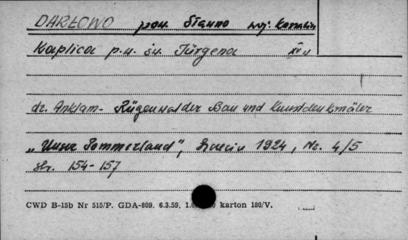 DARŁOWO pow. Sławno woj. Koszalin
Kaplica p.w. św. Jürgena XV w
dr. Anklam - Rügenwalder Bau und Kunstdenkmäler
„Unser Pommerland", 1924, Nr. 4/5
str. 154-157
CWD B-15b Nr 515/P. GDA-809. 6.3.59. karton 180/V.